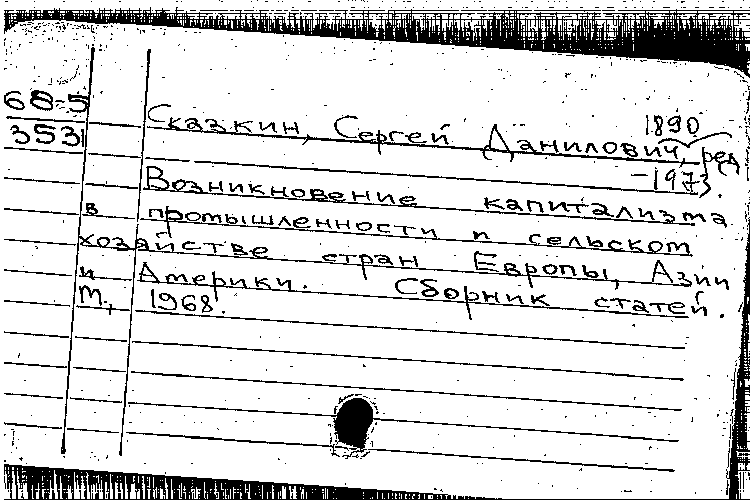 68-5
353
1890
Сказкин, Сергей Данилович, ред.
-1973.
Возникновение капитализма
в промышленности и сельском
хозяйстве стран Европы, Азии
и Америки. Сборник статей.
М., 1968.